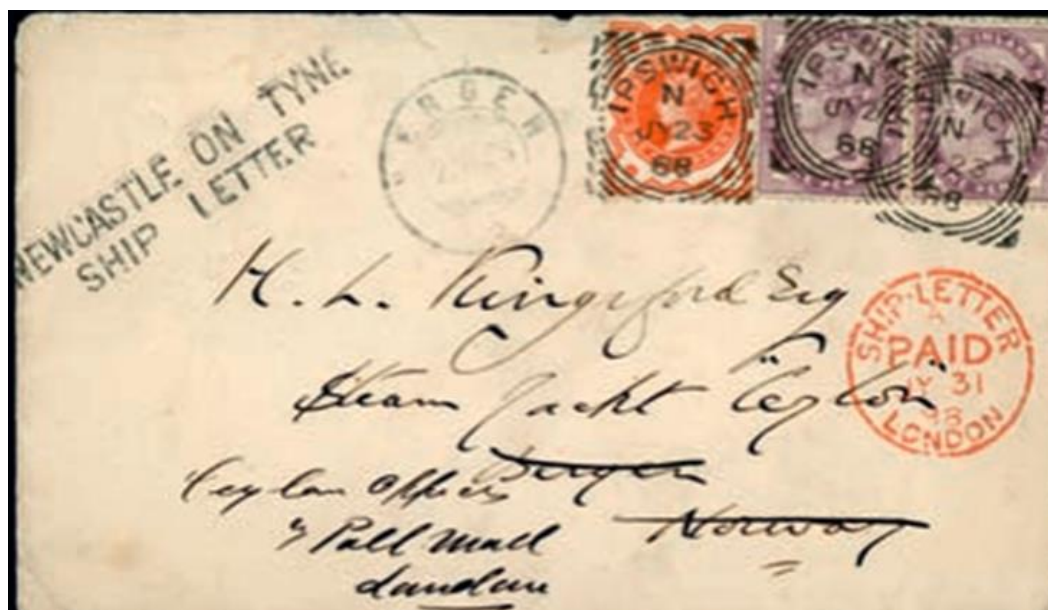 NEWCASTLE ON TYNE
SHIP LETTER
BERGEN
IPSWICH
N
JY 23
88
IPSWICH
N
JY 2
88
IPSWICH
N
23
88
H. L. Kingsford Esq
Steam Yacht "Ceylon"
Bergen
Norway
Ceylon Office
7 Pall Mall
London
SHIP-LETTER
PAID
JY 31
88
LONDON